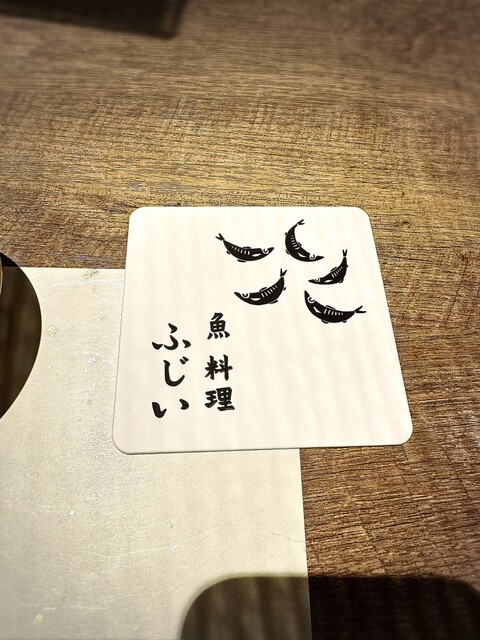 魚料理
ふじい